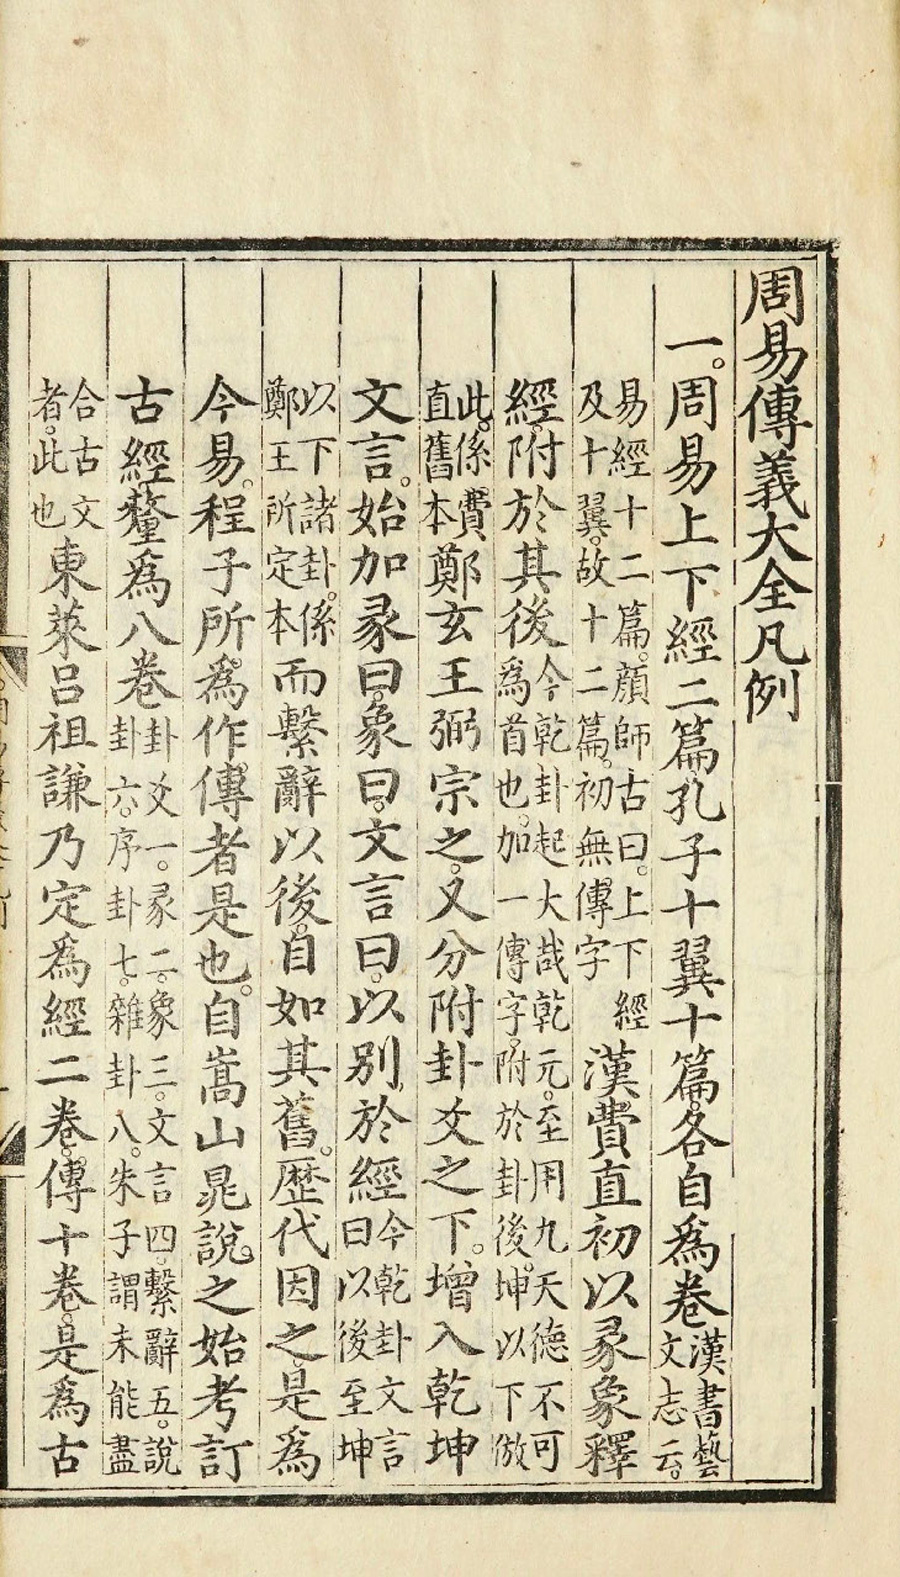 周易傳義大全凡例
一。周易上下經二篇孔子十翼十篇。各自爲卷漢書藝文志云。
易經十二篇。顔師古曰。上下經及十翼。故十二篇。初無傳字漢費直初以彖象釋
經。附於其後今乾卦起大哉乾元。至用九天德不可爲首也。加一傳字。附於卦後。坤以下倣
此。係費直舊本鄭玄王弼宗之。又分附卦爻之下。增入乾坤
文言。始加彖曰。象曰。文言曰。以别於經今乾卦文言曰以後至坤
以下諸卦。係鄭王所定本而繫辭以後。自如其舊。歴代因之。是爲
今易。程子所爲作傳者是也。自嵩山晁說之始考訂
古經釐爲八卷卦爻一。彖二。象三。文言四。繫辭五。說卦六。序卦七。雜卦八。朱子謂未能盡
合古文者。此也東萊呂祖謙乃定爲經二卷。傳十卷。是爲古